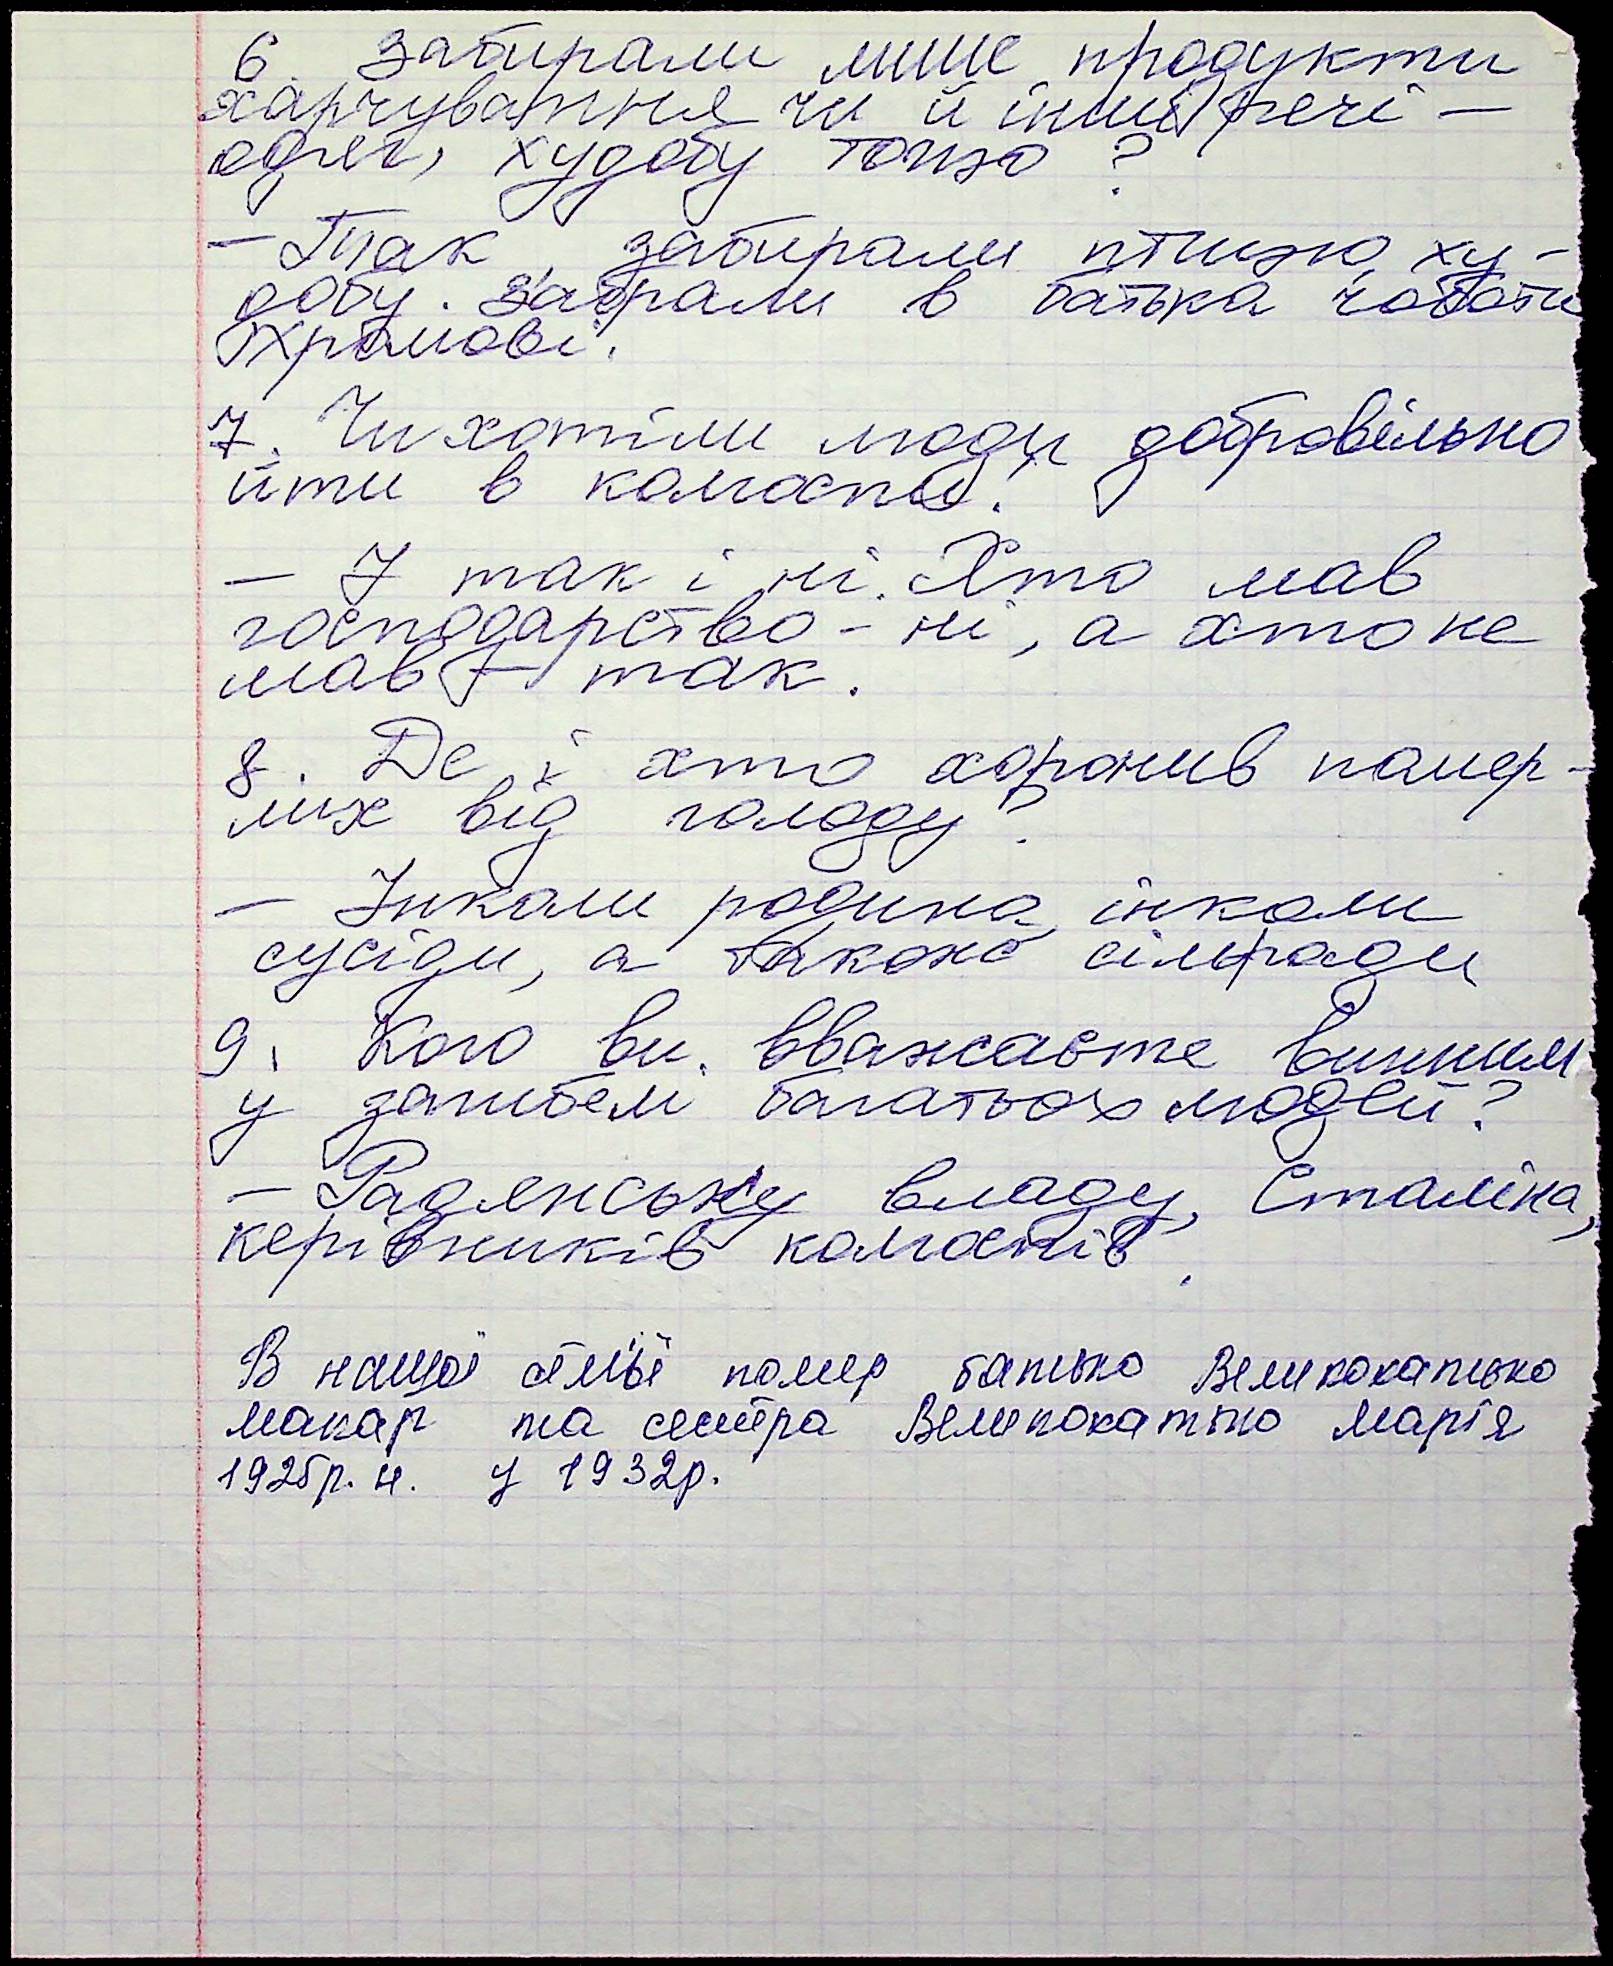 6. Забирали лише продукти
харчування чи й інші речі –
одяг, худобу тощо?
– Так, забирали птицю, ху-
добу. Забрали в батька чоботи
хромові.
7. Чи хотіли люди добровільно
йти в колгоспи?
– І так і ні. Хто мав
господарство – ні, а хто не
мав – так.
8. Де і хто хоронив помер-
лих від голоду?
– Інколи родина, інколи
сусіди, а також сільради
9. Кого ви вважаєте винним
у загибелі багатьох людей?
– Радянську владу, Сталіна,
керівників колгоспів.
В нашої сем'ї помер батько Великохатько
Макар та сестра Великохатько Марія
1925р. н. у 1932р.